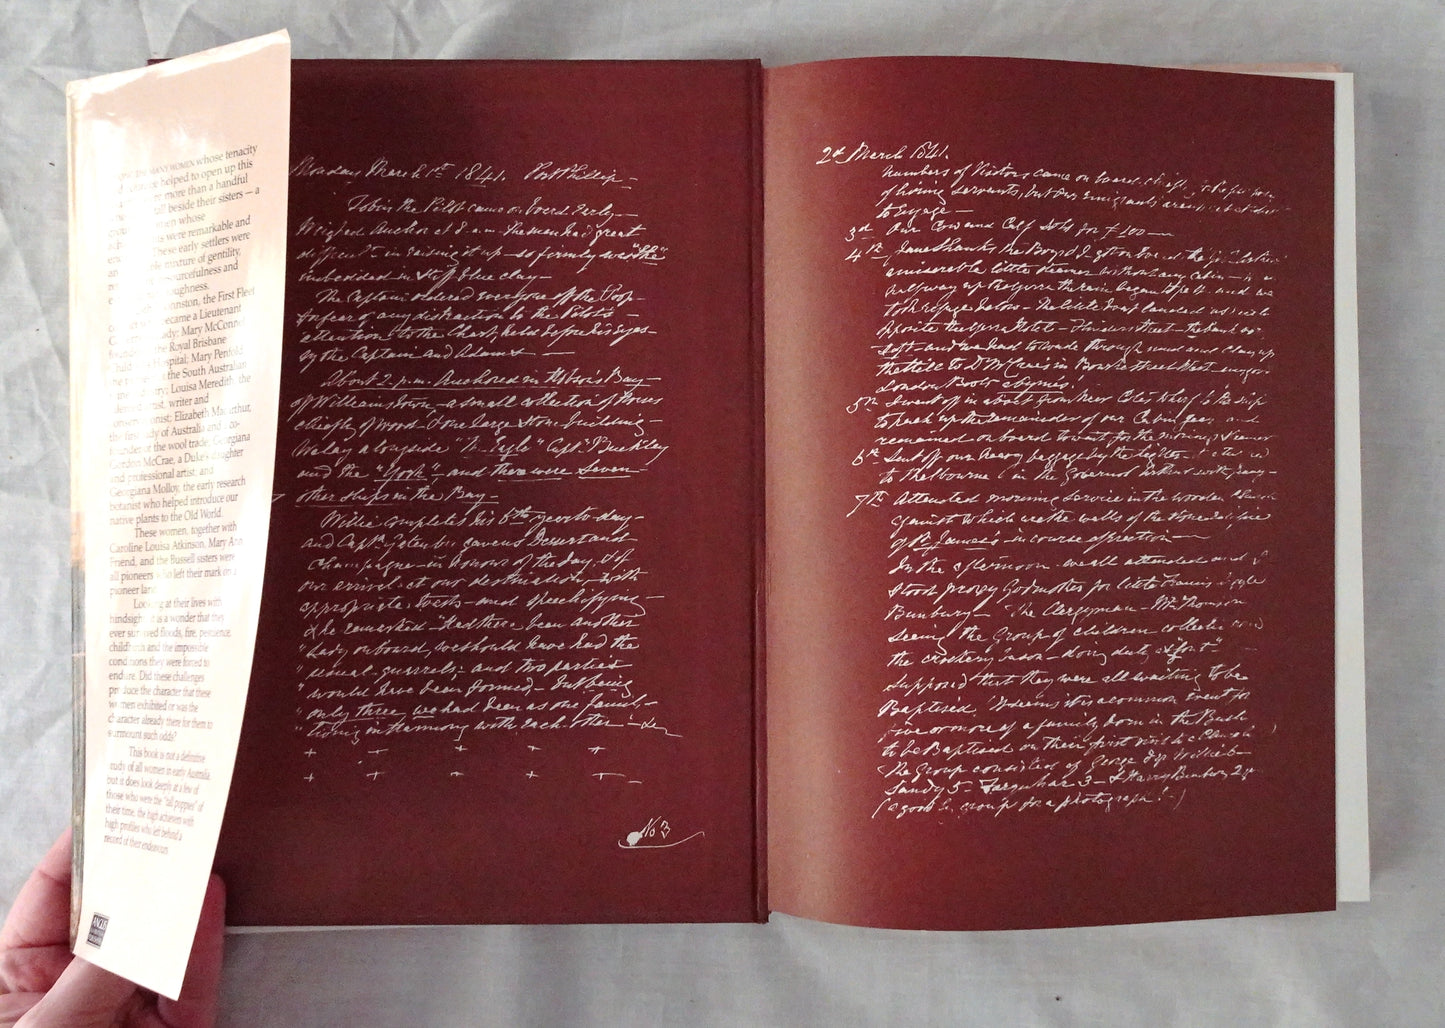 MANY WOMEN whose tenacity
helped to open up this
more than a handful
beside their sisters — a
women whose
were remarkable and
These early settlers were
mixture of gentility,
resourcefulness and
toughness.
Johnston, the First Fleet
became a Lieutenant
Mary McConnel
the Royal Brisbane
Hospital; Mary Penfold
the South Australian
Louisa Meredith, the
artist, writer and
Elizabeth Macarthur,
the first lady of Australia and co-
founder of the wool trade; Georgiana
Gordon McCrae, a Duke's daughter
and professional artist; and
Georgiana Molloy, the early research
botanist who helped introduce our
native plants to the Old World.
These women, together with
Caroline Louisa Atkinson, Mary Ann
Friend, and the Bussell sisters were
all pioneers who left their mark on a
pioneer land.
Looking at their lives with
hindsight it is a wonder that they
ever survived floods, fire, pestilence,
childbirth and the impossible
conditions they were forced to
endure. Did these challenges
produce the character that these
women exhibited or was the
character already there for them to
surmount such odds?
This book is not a definitive
study of all women in early Australia
but it does look deeply at a few of
those who were the "tall poppies" of
their time, the high achievers with
high profiles who left behind a
record of their endeavours
ANGUS
Monday March 1st 1841. Port Phillip —
Tobin the Pilot came on board Early —
Weighed Anchor at — the men had great
difficulty in raising it up — so firmly was "the"
imbedded in stiff blue clay —
The Captain ordered everyone off the Poop —
for fear of any distraction to the Pilot's —
attention to the Chart, held before his eyes —
by the Captain and Adams —
About 2. p.m. Anchored in Hobson's Bay —
off Williams Town — a small collection of houses
chiefly of wood & one large stone building —
We lay alongside "The Eagle" Captn Buckley
and the "York" — and there were seven —
other ships in the Bay —
Willie completes his 6th year to-day —
and Captn gave us Dessert and
Champagne — in honour of the day, & of
our arrival at our destination, with
appropriate toasts — and speechifying —
& he remarked "Had there been another
"Lady on board, we should have had the
"usual quarrels — and two parties
"would have been formed — but being
"only three we had been as one family —
"living in harmony with each other"
+ + + + +
+ + + + +
No 3
2d March 1841.
Numbers of Visitors came on board
of hiring servants, but our emigrants are
to engage —
3rd Our Cow and Calf sold for £100 —
4th Jane Shanks, the Boys & I got on board the
a miserable little steamer without any cabin —
halfway up the the rain began to and we
took refuge below — The little boat landed us
opposite the Hotel — Flinders Street — the bank
soft — and we had to wade through mud and clay up
the hill to Dr McCrae's in Bourke Street West
London Boots
5th Down to the ship
to pack up the remainder of our Cabin gear and
remained on board to wait for the mornings steamer
6th Sent off our heavy baggage by the lighter
to Melbourne in the Governor Arthur
7th Attended morning service in the wooden church
against which are the walls of the stone edifice
of St. James's — in course of erection —
In the afternoon — we all attended and I
stood proxy Godmother for little Francis
Bunbury — The Clergyman — Mr Thomson
seeing the group of children collected
the — doing duty as font —
supposed that they were all waiting to be
Baptised. It seems it is a common event for
five or more of a family, born in the Bush
to be Baptised on their first visit to
The Group consisted of George Willie 6 —
Sandy 5 — Farquhar 3 — & Harry Bunbury 2
(a good group for a photograph! —)